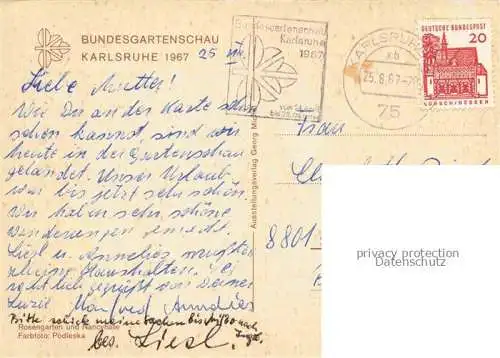 BUNDESGARTENSCHAU
KARLSRUHE 1967
25. VIII.
Liebe Mutter!
Wie Du an der Karte schon
sehen kannst, sind wir
heute in der Gartenschau
gelandet. Unser Urlaub
war bis jetzt sehr schön.
Wir haben sehr schöne
Wanderungen gemacht.
Liesl u. Annelies mußten
haushalten. Sei
recht lieb gegrüßt von Deiner
Luzie Manfred Annelies
Bitte schick meine Sachen bis nach
bes. Liesl.
Rosengarten und Nancyhalle
Farbfoto: Podleska
Ausstellungsverlag Georg
Bundesgartenschau
Karlsruhe
1967
KARLSRUHE
xb
25.8.67
75
DEUTSCHE BUNDESPOST
20
LORSCH/HESSEN
Frau
8801
privacy protection
Datenschutz